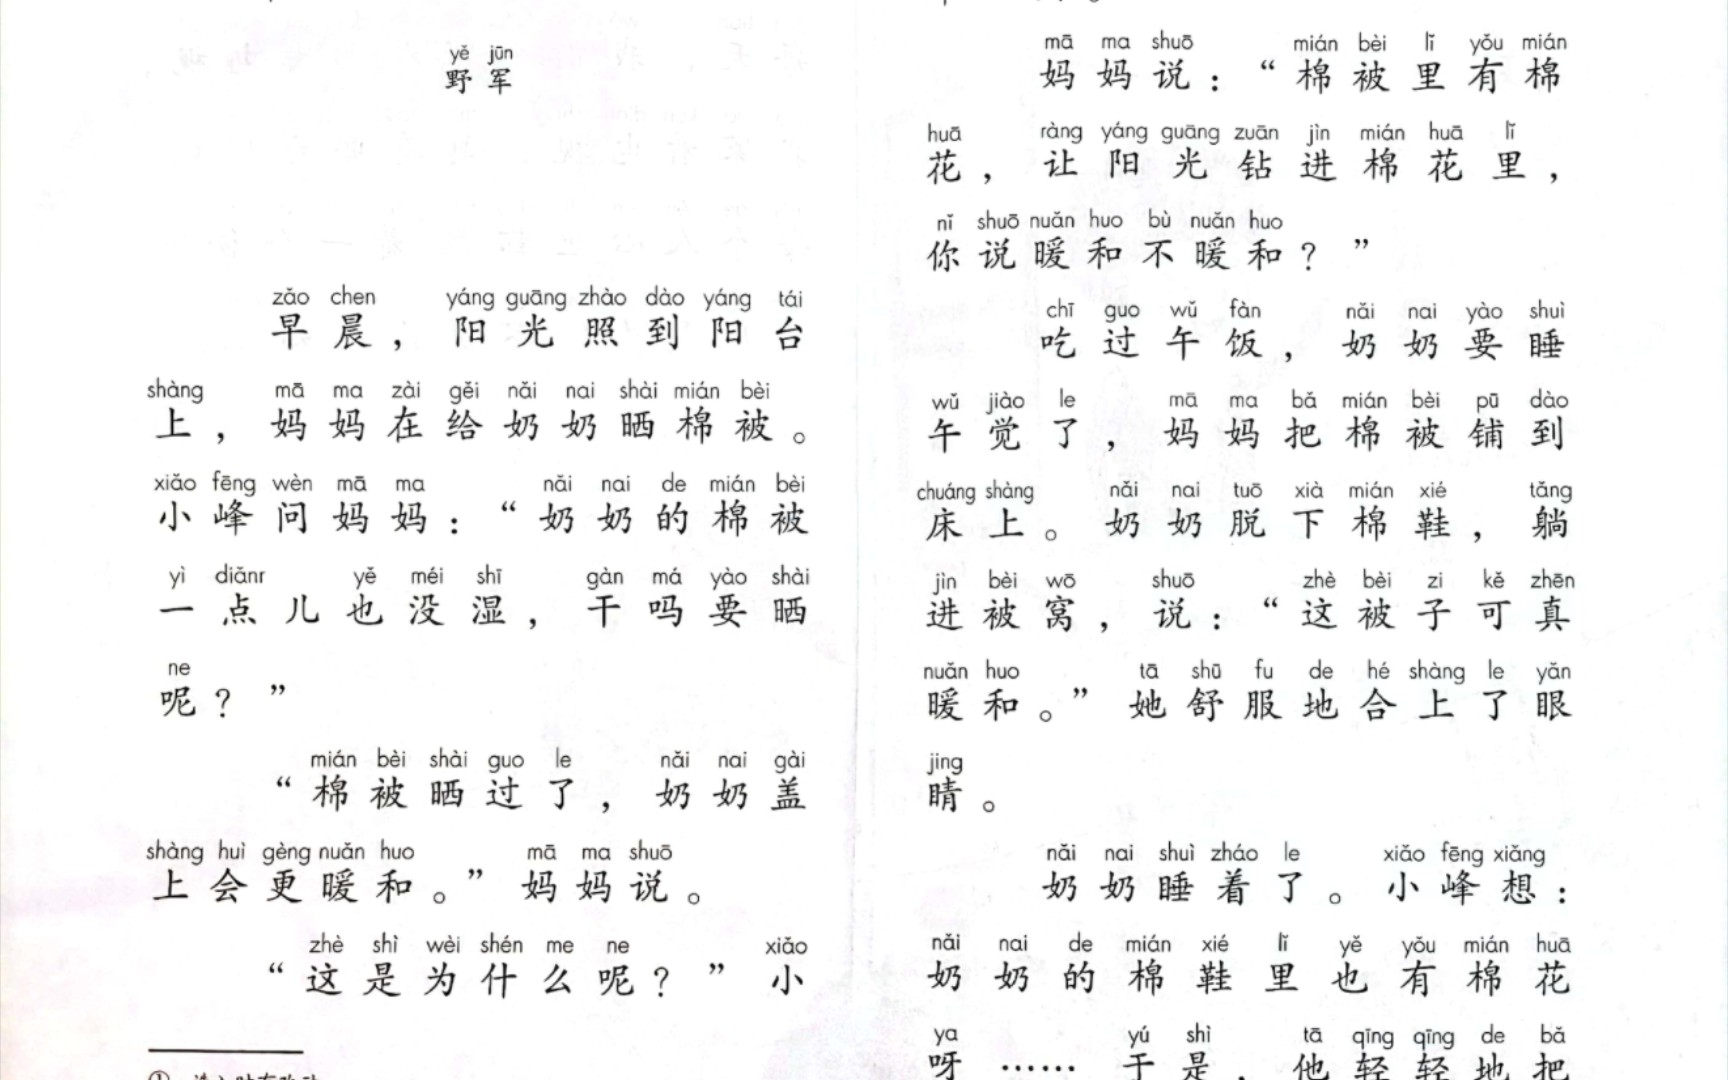 yě jūn
野军
zǎo chen yáng guāng zhào dào yáng tái
早晨，阳光照到阳台
shàng mā ma zài gěi nǎi nai shài mián bèi
上，妈妈在给奶奶晒棉被。
xiǎo fēng wèn mā ma nǎi nai de mián bèi
小峰问妈妈：“奶奶的棉被
yì diǎnr yě méi shī gàn má yào shài
一点儿也没湿，干吗要晒
ne
呢？”
mián bèi shài guo le nǎi nai gài
“棉被晒过了，奶奶盖
shàng huì gèng nuǎn huo mā ma shuō
上会更暖和。”妈妈说。
zhè shì wèi shén me ne xiǎo
“这是为什么呢？”小
mā ma shuō mián bèi lǐ yǒu mián
妈妈说：“棉被里有棉
huā ràng yáng guāng zuān jìn mián huā lǐ
花，让阳光钻进棉花里，
nǐ shuō nuǎn huo bù nuǎn huo
你说暖和不暖和？”
chī guo wǔ fàn nǎi nai yào shuì
吃过午饭，奶奶要睡
wǔ jiào le mā ma bǎ mián bèi pū dào
午觉了，妈妈把棉被铺到
chuáng shàng nǎi nai tuō xià mián xié tǎng
床上。奶奶脱下棉鞋，躺
jìn bèi wō shuō zhè bèi zi kě zhēn
进被窝，说：“这被子可真
nuǎn huo tā shū fu de hé shàng le yǎn
暖和。”她舒服地合上了眼
jing
睛。
nǎi nai shuì zháo le xiǎo fēng xiǎng
奶奶睡着了。小峰想：
nǎi nai de mián xié lǐ yě yǒu mián huā
奶奶的棉鞋里也有棉花
ya yú shì tā qīng qīng de bǎ
呀……于是，他轻轻地把